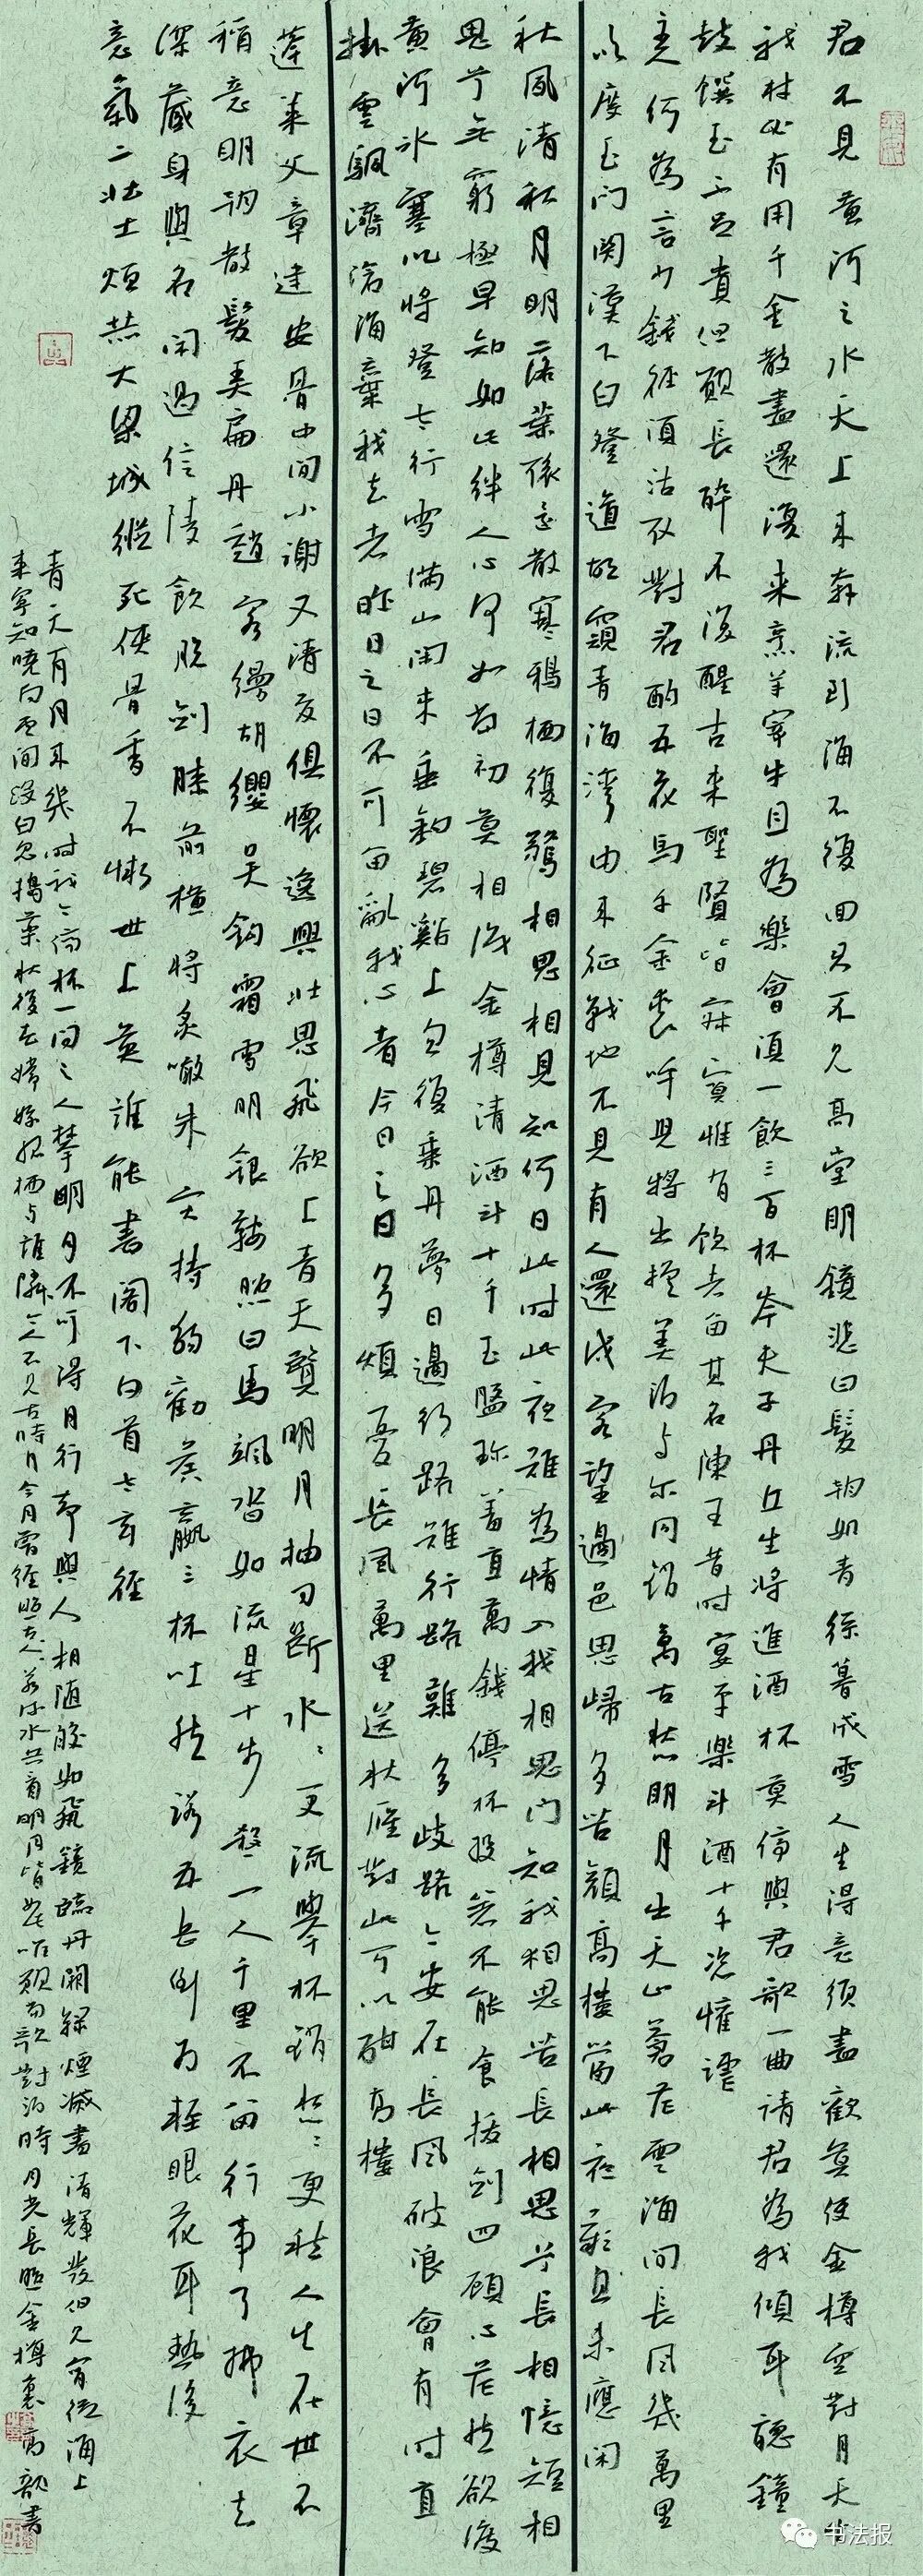 君不見黄河之水天上来奔流到海不復回君不見高堂明鏡悲白髮朝如青絲暮成雪人生得意須盡歡莫使金樽空對月天生
我材必有用千金散盡還復来烹羊宰牛且為樂會須一飲三百杯岑夫子丹丘生將進酒杯莫停與君歌一曲請君為我傾耳聽鐘
鼓饌玉不足貴但願長醉不復醒古来聖賢皆寂寞惟有飲者留其名陳王昔时宴平樂斗酒十千恣懽謔
主何為言少錢徑須沽取對君酌五花馬千金裘呼兒將出換美酒与尔同銷萬古愁明月出天山蒼茫雲海间長風幾萬里
吹度玉门関漢下白登道胡窺青海灣由来征戰地不見有人還戍客望邊邑思歸多苦顏高樓當此夜歎息未應闲
秋風清秋月明落葉聚還散寒鴉栖復驚相思相見知何日此时此夜難為情入我相思门知我相思苦長相思兮長相憶短相
思兮無窮極早知如此絆人心何如當初莫相識金樽清酒斗十千玉盤珍羞直萬錢停杯投箸不能食拔劍四顧心茫然欲渡
黄河冰塞川將登太行雪满山闲来垂釣碧谿上忽復乘舟夢日邊行路難行路難多歧路今安在長風破浪會有时直
掛雲帆濟滄海棄我去者昨日之日不可留亂我心者今日之日多煩憂長風萬里送秋雁對此可以酣高樓
蓬萊文章建安骨中间小謝又清發俱懷逸興壯思飛欲上青天覽明月抽刀斷水〻更流舉杯銷愁〻更愁人生在世不
稱意明朝散髮弄扁舟趙客縵胡纓吴鈎霜雪明銀鞍照白馬颯沓如流星十步殺一人千里不留行事了拂衣去
深藏身與名闲過信陵飲脱劍膝前橫將炙啖朱亥持觴勸侯嬴三杯吐然諾五岳倒为輕眼花耳熱後
意氣二壯士烜赫大梁城縱死俠骨香不慚世上英誰能書閣下白首太玄經
青天有月来幾时我今停杯一问之人攀明月不可得月行却與人相随皎如飛鏡臨丹闕緑煙滅盡清輝發但見宵從海上
来寧知曉向雲间没白兔搗藥秋復春嫦娥孤栖与誰隣今人不見古時月今月曾經照古人若流水共看明月皆如此唯願當歌對酒時月光長照金樽裏高歌書
书法报